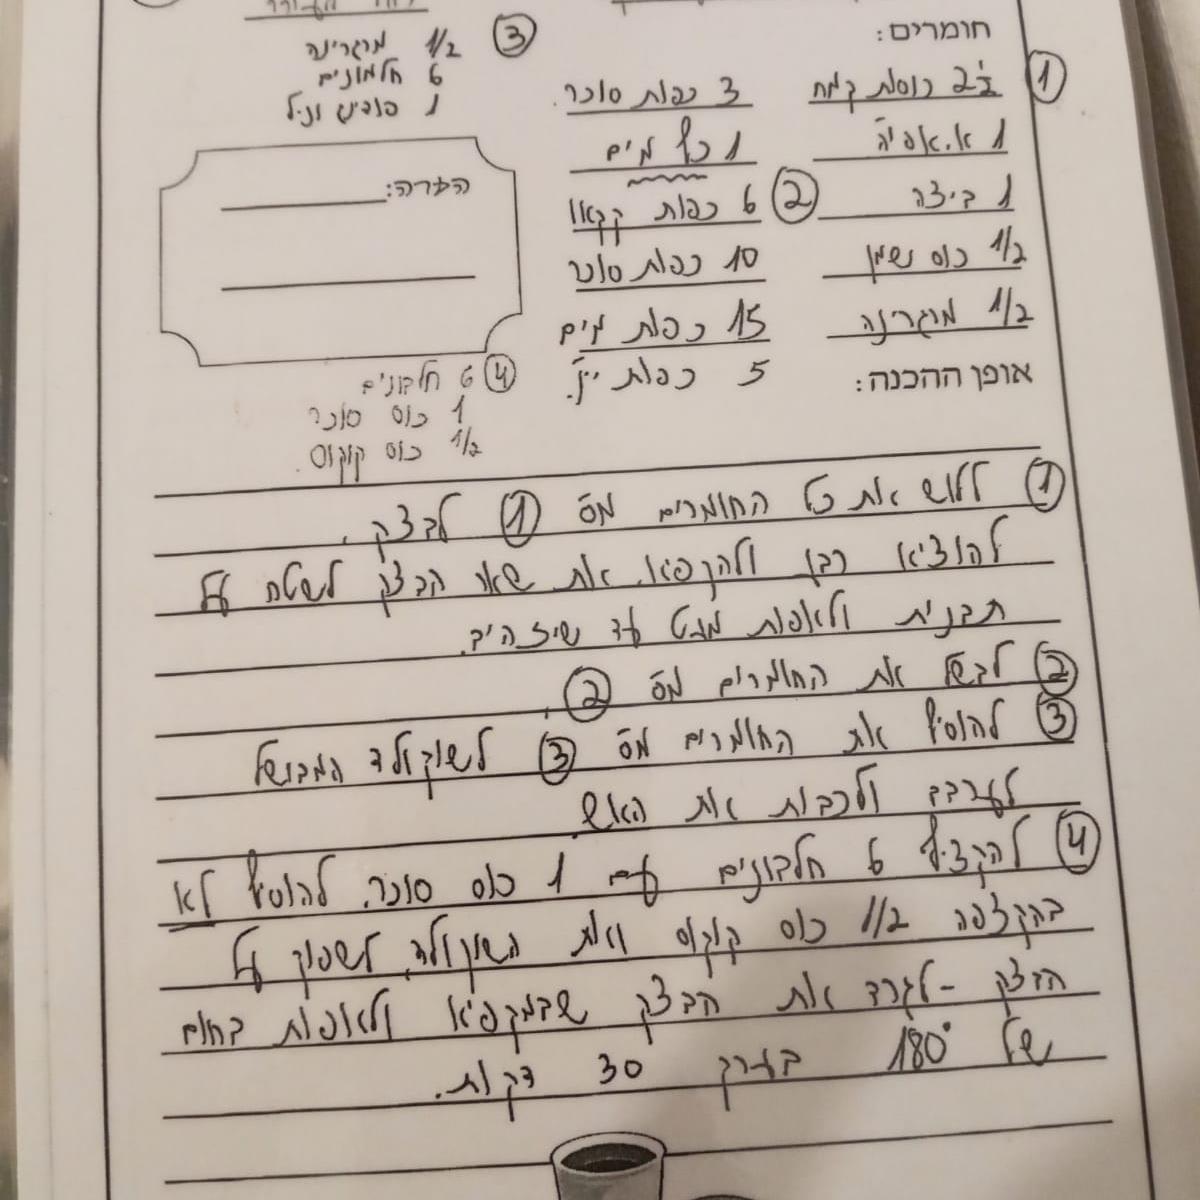 חומרים:
① 2½ כוסות קמח
1 א.אפיה
1 ביצה
1/2 כוס שמן
1/2 מרגרינה
3 כפות סוכר.
1 כף מים
② 6 כפות קקאו
10 כפות סוכר
15 כפות מים
5 כפות יין.
③ 1/2 מרגרינה
6 חלמונים
1 פודינג וניל
הערה:
④ 6 חלבונים
1 כוס סוכר
1/2 כוס קוקוס.
אופן ההכנה:
① ללוש את כל החומרים מס ① לבצק.
להוציא רבע ולהקפיא. את שאר הבצק לשטח על
תבנית ולאפות מעט עד שיזהיב.
② לבשל את החומרים מס ②.
③ להוסיף את החומרים מס ③ לשוקולד המבושל
לערבב ולכבות את האש.
④ להקציף 6 חלבונים עם 1 כוס סוכר. להוסיף לא
בהקצפה 1/2 כוס קוקוס ואת השוקולד, לשפוך על
הבצק - לגרד את הבצק שבמקפיא ולאפות בחום
של 180° בערך 30 דקות.